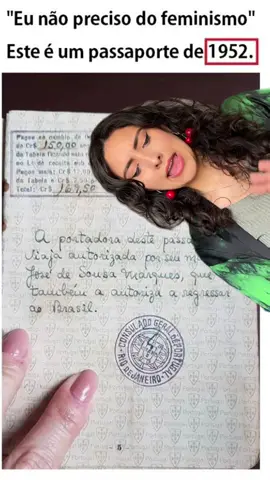 "Eu não preciso do feminismo"
Este é um passaporte de 1952.
de Cr$ 150,00
Total: Cr$ 167,50
A portadora deste
viaja autorizada por seu
José de Sousa Marques, que
também a autoriza a regressar
ao Brasil.
CONSULADO GERAL DE PORTUGAL
RIO DE JANEIRO
5